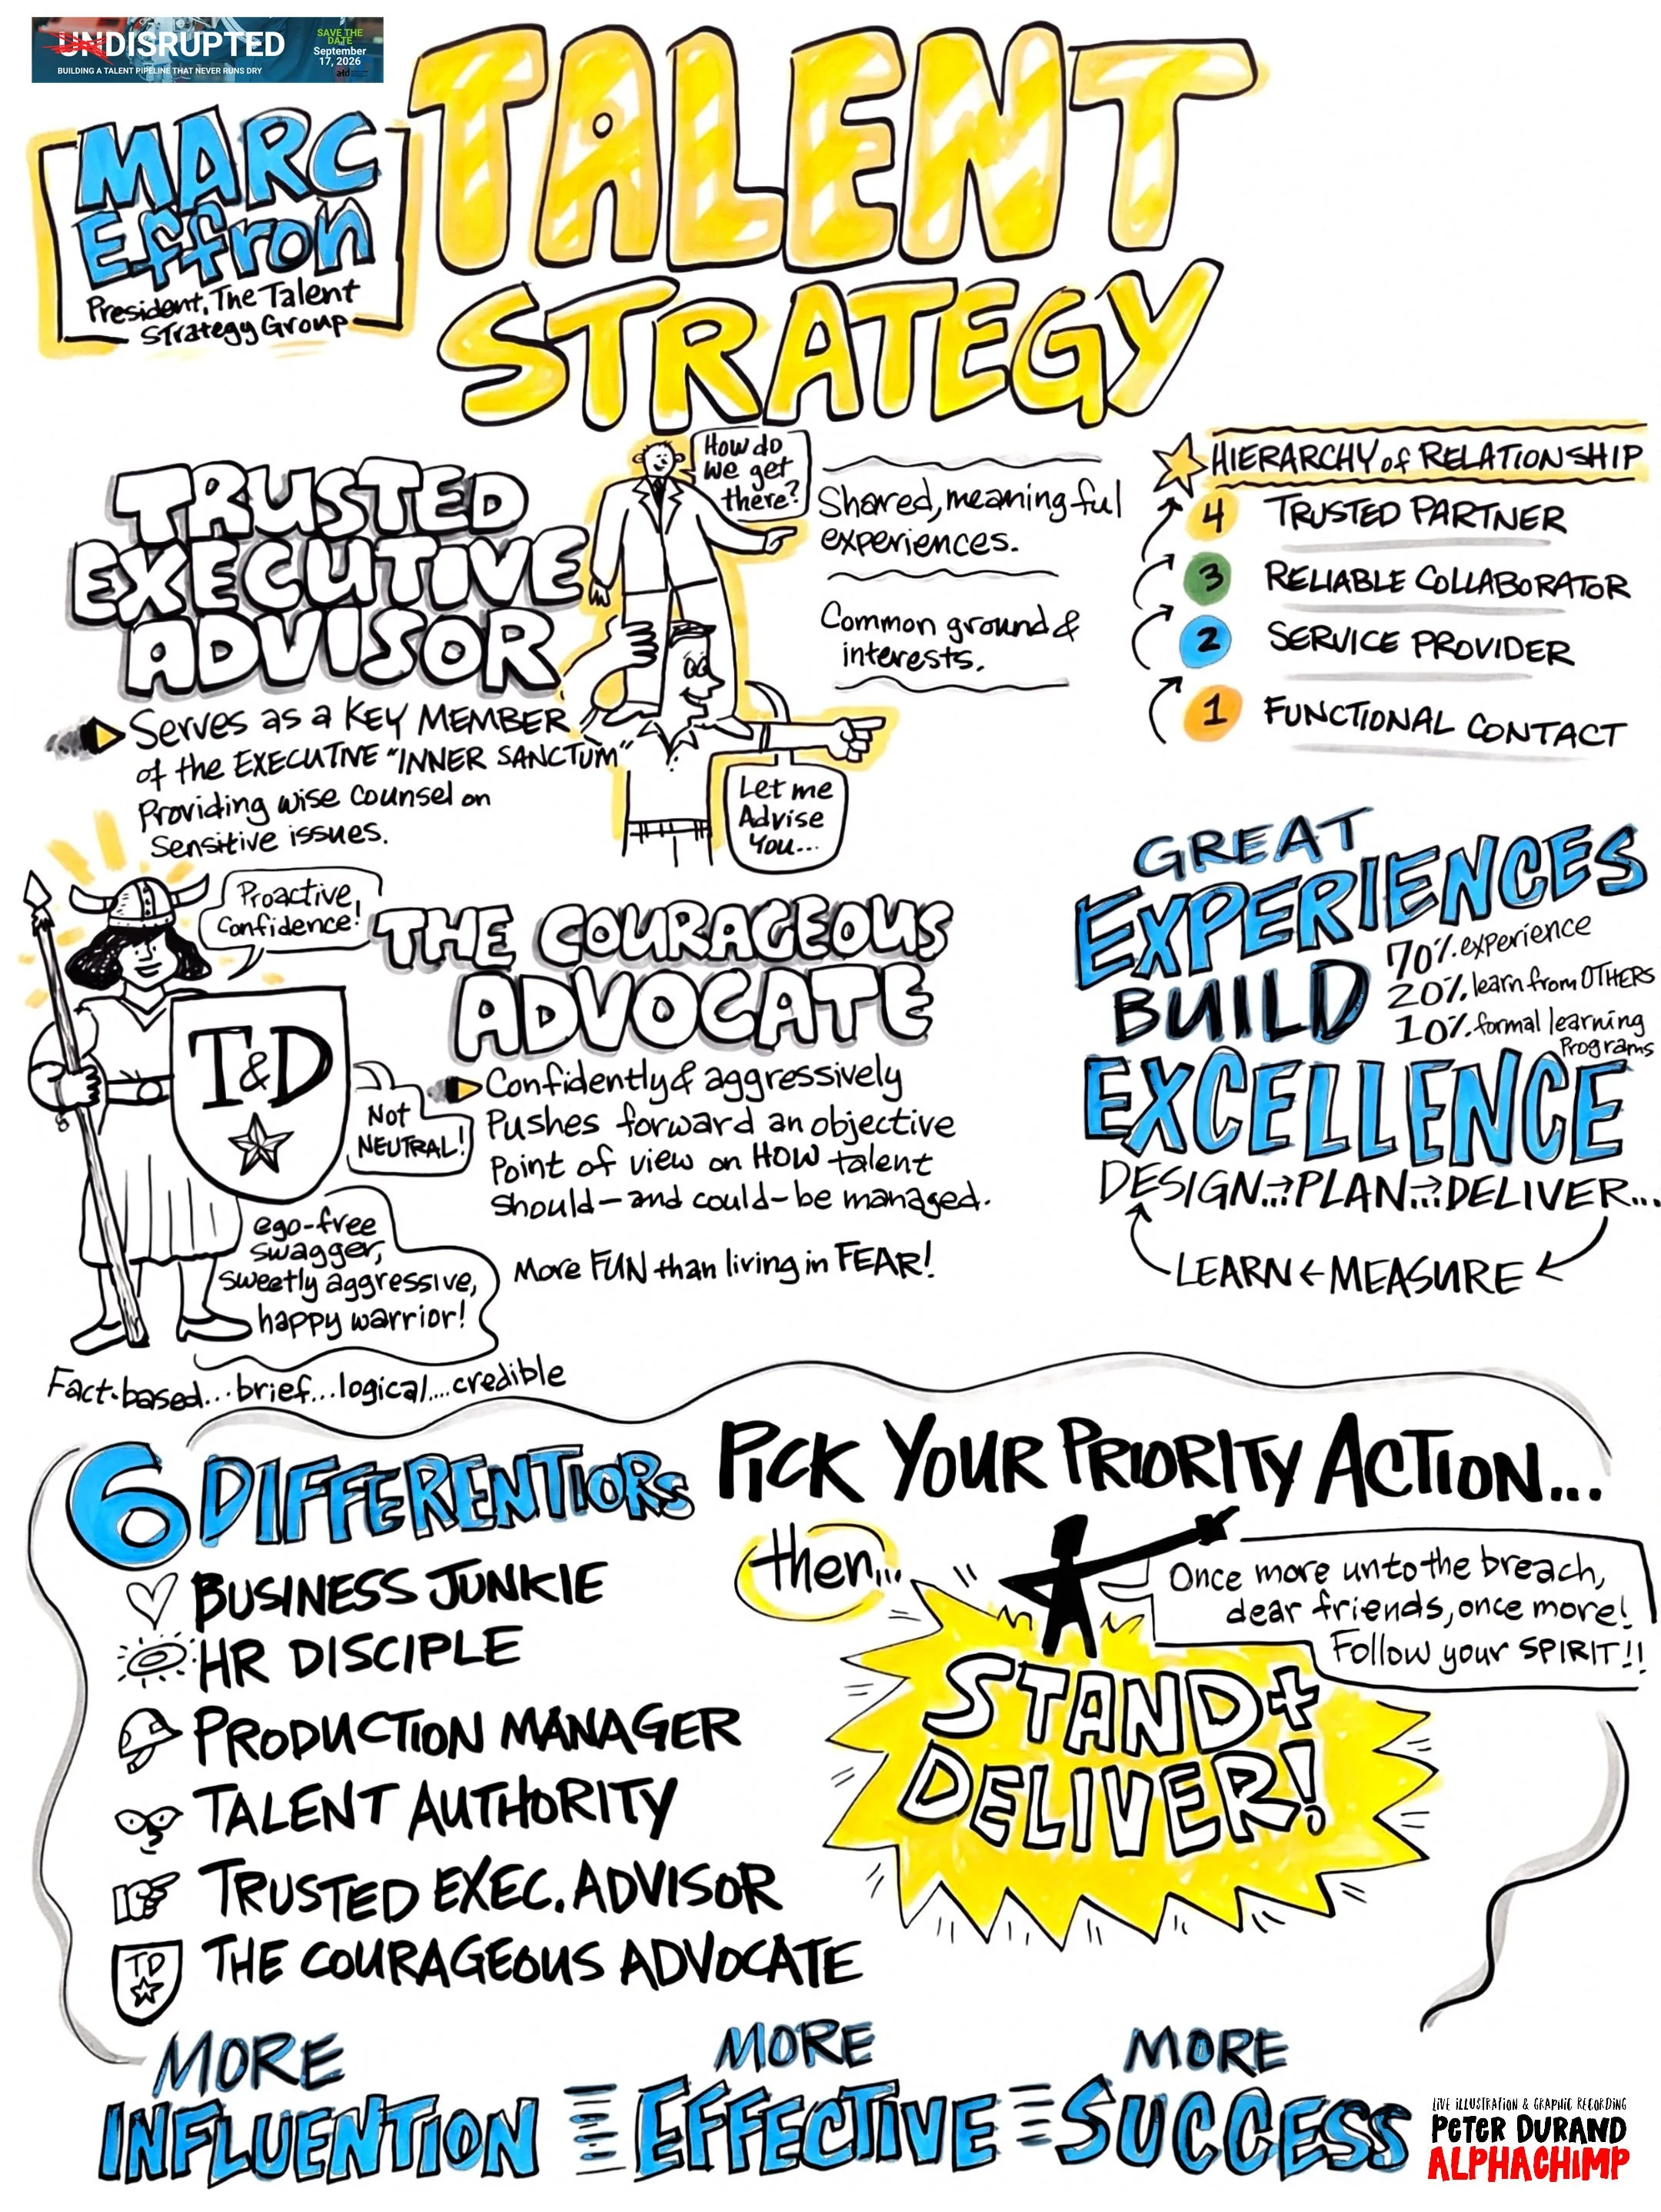 UNDISRUPTED
BUILDING A TALENT PIPELINE THAT NEVER RUNS DRY
SAVE THE
DATE
September
17, 2026
atd
MARC
Effron
President, The Talent
Strategy Group
TALENT
STRATEGY
TRUSTED
EXECUTIVE
ADVISOR
Serves as a KEY MEMBER
of the EXECUTIVE "INNER SANCTUM"
Providing wise counsel on
Sensitive issues.
How do
we get
there?
Let me
Advise
You...
Shared, meaningful
experiences.
Common ground &
interests.
HIERARCHY of RELATIONSHIP
4 TRUSTED PARTNER
3 RELIABLE COLLABORATOR
2 SERVICE PROVIDER
1 FUNCTIONAL CONTACT
Proactive
Confidence!
T&D
Not
NEUTRAL!
ego-free
swagger,
sweetly aggressive,
happy warrior!
Fact-based...brief...logical....credible
THE COURAGEOUS
ADVOCATE
Confidently & aggressively
Pushes forward an objective
Point of view on HOW talent
should—and could—be managed.
More FUN than living in FEAR!
GREAT
EXPERIENCES
BUILD
70% experience
20% learn from OTHERS
10% formal learning
Programs
EXCELLENCE
DESIGN...→PLAN...→DELIVER...
LEARN ← MEASURE
6 DIFFERENTIORS
BUSINESS JUNKIE
HR DISCIPLE
PRODUCTION MANAGER
TALENT AUTHORITY
TRUSTED EXEC. ADVISOR
TD
THE COURAGEOUS ADVOCATE
PICK YOUR PRIORITY ACTION...
then...
Once more unto the breach,
dear friends, once more!
Follow your SPIRIT!!
STAND +
DELIVER!
MORE
INFLUENTION
MORE
EFFECTIVE
MORE
SUCCESS
LIVE ILLUSTRATION & GRAPHIC RECORDING
PETER DURAND
ALPHACHIMP